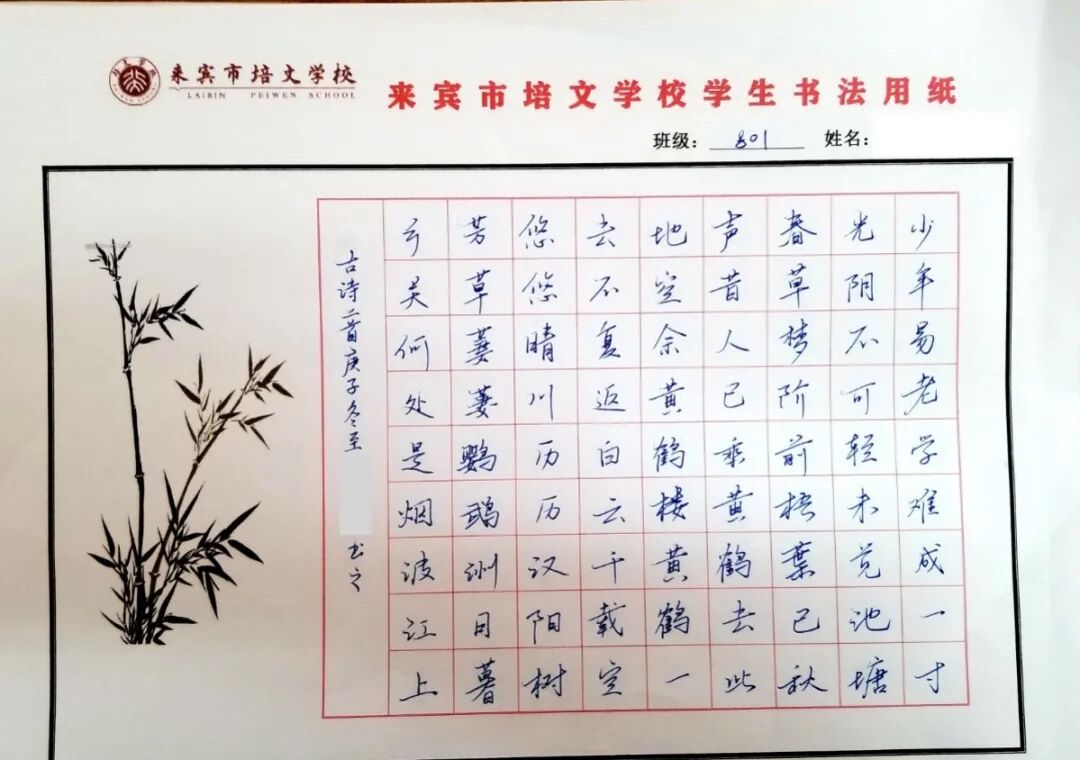 来宾市培文学校
LAIBIN PEIWEN SCHOOL
来宾市培文学校学生书法用纸
班级: 801 姓名:
少年易老学难成一寸
光阴不可轻未觉池塘
春草梦阶前梧葉已秋
声昔人已乘黄鹤去此
地空余黄鹤楼黄鹤一
去不复返白云千载空
悠悠晴川历历汉阳树
芳草萋萋鹦鹉洲日暮
乡关何处是烟波江上
古诗二首庚子冬至 书之